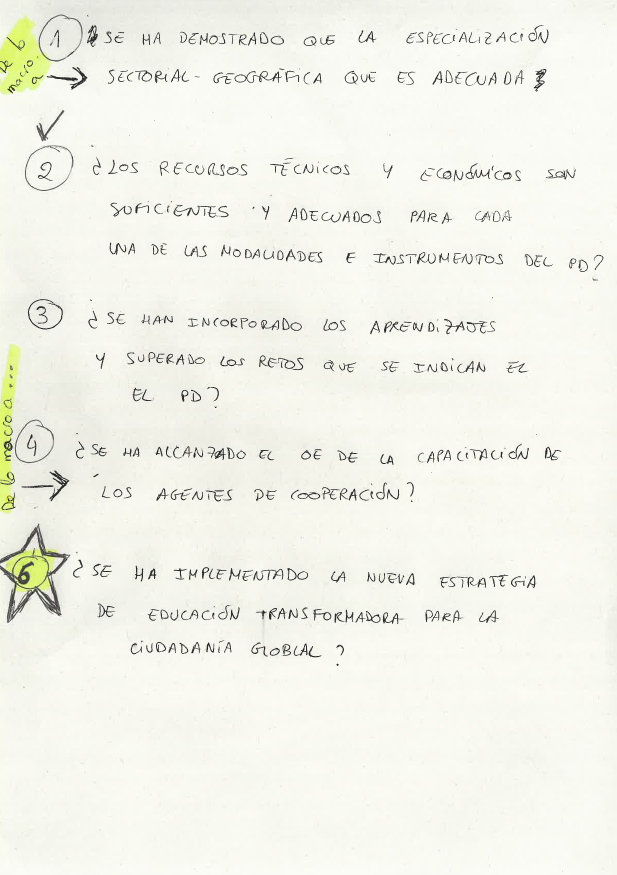 De lo
macro.
a
1 ¿SE HA DEMOSTRADO QUE LA ESPECIALIZACIÓN
SECTORIAL-GEOGRÁFICA QUE ES ADECUADA?
2 ¿LOS RECURSOS TÉCNICOS Y ECONÓMICOS SON
SUFICIENTES Y ADECUADOS PARA CADA
UNA DE LAS MODALIDADES E INSTRUMENTOS DEL PD?
3 ¿SE HAN INCORPORADO LOS APRENDIZAJES
Y SUPERADO LOS RETOS QUE SE INDICAN EL
EL PD?
De lo macro a ...
4 ¿SE HA ALCANZADO EL OE DE LA CAPACITACIÓN DE
LOS AGENTES DE COOPERACIÓN?
5 ¿SE HA IMPLEMENTADO LA NUEVA ESTRATEGIA
DE EDUCACIÓN TRANSFORMADORA PARA LA
CIUDADANÍA GLOBLAL?